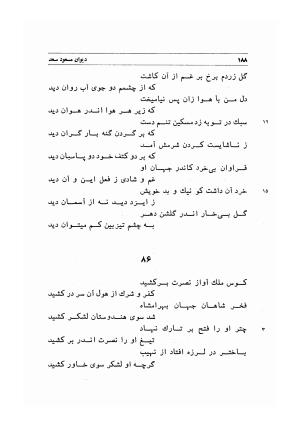 ۱۸۸ دیوان مسعود سعد
گل زردم برخ بر غم از آن کاشت
که از چشمم دو جوی آب روان دید
دل من با هوا زان پس نیامیخت
که زیر هر هوا اندر هوان دید
۱۲ سبك در توبه زد مسکین تنم دست
که بر گردن گنه بار گران دید
ز ناشایست کردن شرمش آمد
که بر دو کتف خود دو پاسبان دید
فراوان بی‌خرد کاندر جهان او
غم و شادی ز فعل این و آن دید
۱۵ خرد آن داشت کو نیك و بد خویش
ز ایزد دید نه از آسمان دید
گل بی‌خار اندر گلشن دهر
به چشم تیزبین کم میتوان دید
۸۶
کوس ملك آواز نصرت برکشید
کفر و شرك از هول آن سر در کشید
فخر شاهان جهان بهرامشاه
شد سوی هندوستان لشکر کشید
۳ چتر او را فتح بر تارك نهاد
تیغ او را نصرت اندر بر کشید
باختر در لرزه افتاد از نهیب
گرچه او لشکر سوی خاور کشید